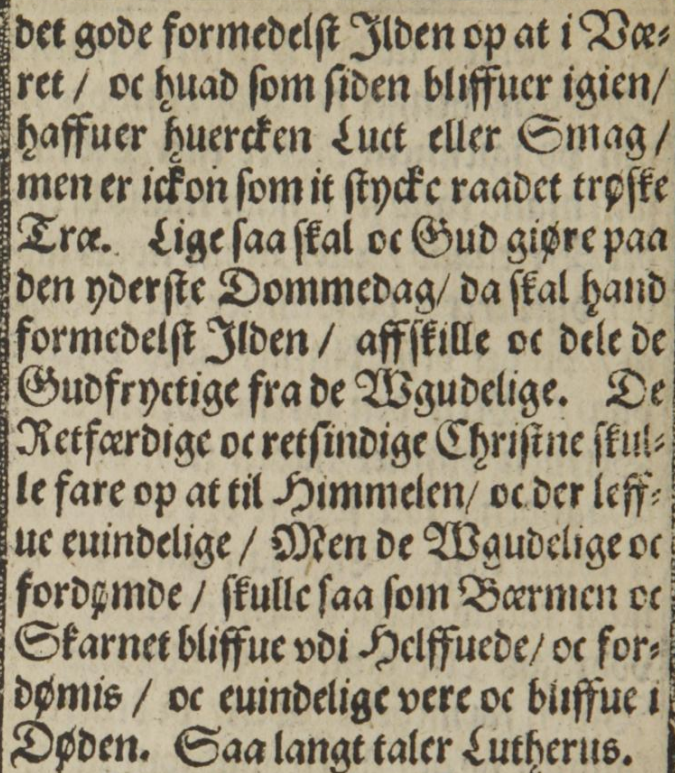 det gode formedelst Ilden op at i Væ-
ret / oc huad som siden bliffuer igien /
haffuer huercken Luct eller Smag /
men er ickon som it stycke raadet trøske
Træ. Lige saa skal oc Gud giøre paa
den yderste Dommedag / da skal hand
formedelst Ilden / affskille oc dele de
Gudfryctige fra de Wgudelige. De
Retfærdige oc retsindige Christne skul-
le fare op at til Himmelen / oc der leff-
ue euindelige / Men de Wgudelige oc
fordømde / skulle saa som Bærmen oc
Skarnet bliffue vdi Helffuede / oc for-
dømis / oc euindelige vere oc bliffue i
Døden. Saa langt taler Lutherus.